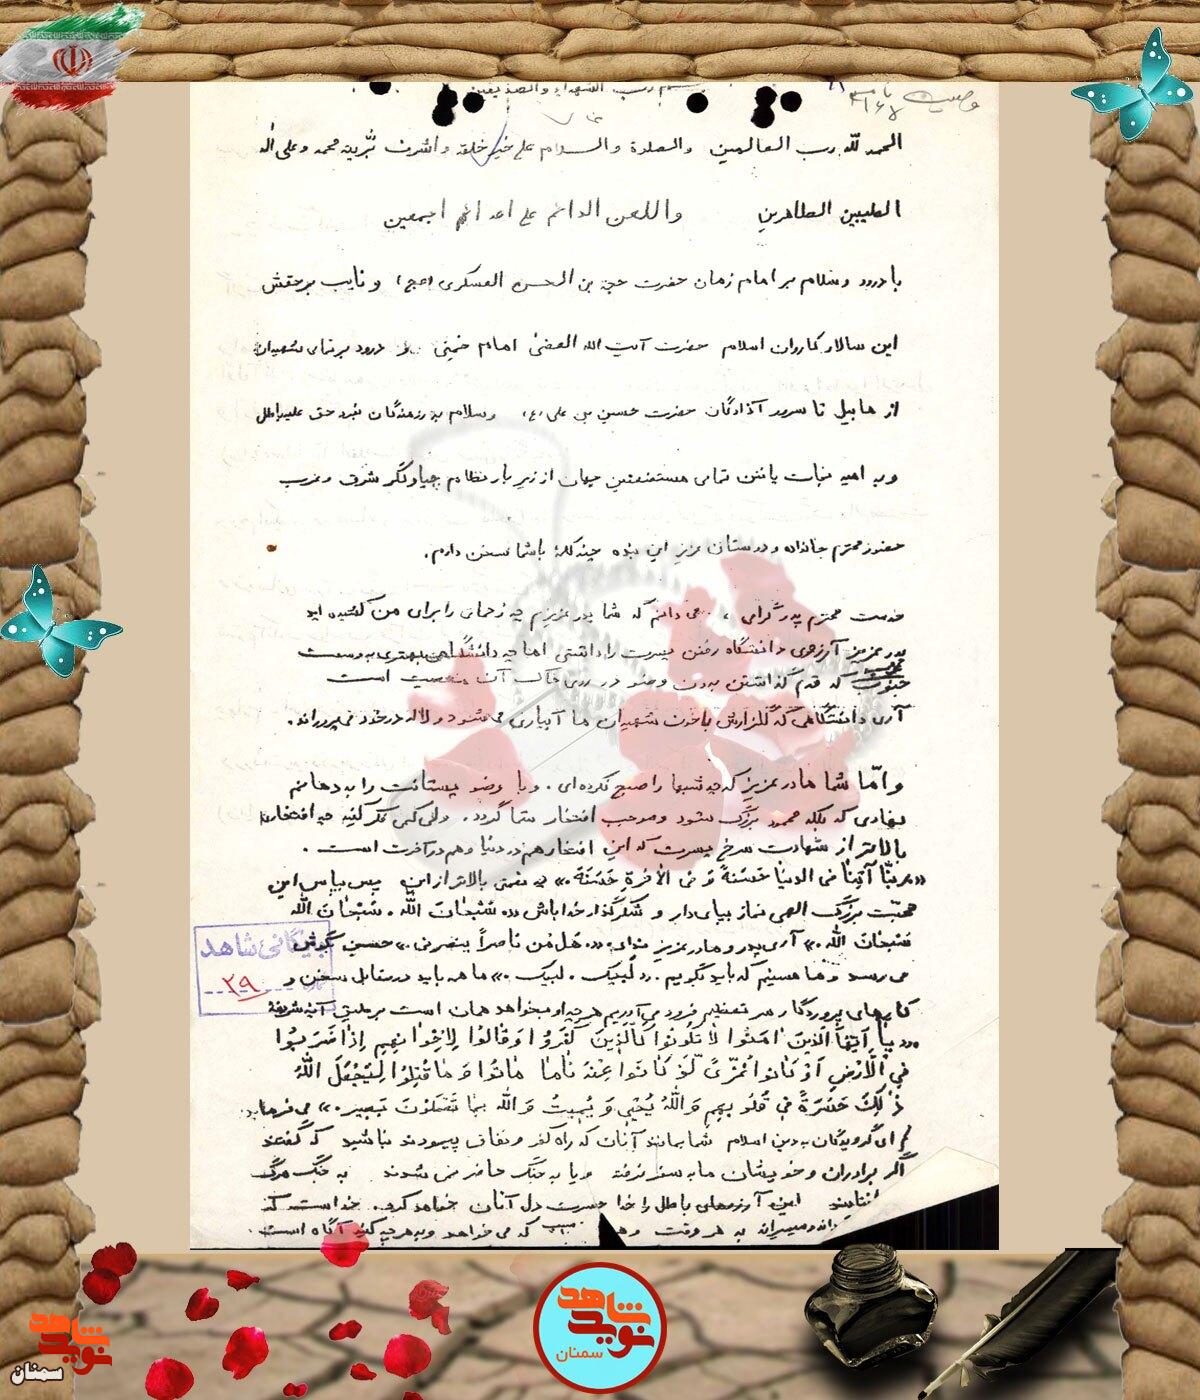 بسم رب الشهداء والصدیقین
وصیت نامه
الحمد لله رب العالمین والصلوة والسلام علی خیر خلقه واشرف بریته محمد وعلی اله
الطیبین الطاهرین واللعن الدائم علی اعدائهم اجمعین
با درود وسلام بر امام زمان حضرت حجة بن الحسن العسکری (عج) و نایب برحقش
این سالار کاروان اسلام حضرت آیت الله العضمی امام خمینی و درود بر تمامی شهیدان
از هابیل تا سرور آزادگان حضرت حسین بن علی (ع) وسلام به رزمندگان نبرد حق علیه باطل
وبه امید نجات یافتن تمامی مستضعفین جهان از زیر بار نظام چپاولگر شرق وغرب
حضور محترم خانواده و دوستان عزیز این بنده چند کلمه باشما سخن دارم.
خدمت محترم پدر گرامی ، می دانم که شما پدر عزیزم چه زحماتی را برای من کشیده اید
پدر عزیز آرزوی دانشگاه رفتن پسرت را داشتی اما چه دانشگاهی بهتری به وسعت
جنوب که قدم گذاشتن بدون وضو در روی خاک آن معصیت است
آری دانشگاهی که گلزارش باخون شهیدان ما آبیاری می شود و لاله در خود می پروراند.
و امّا شما مادر عزیز که چه شبها را صبح نکرده ای . وبا وضو پستانت را به دهانم
نهادی که بلکه محمود بزرگ شود وموجب افتخار شما گردد. ولی کمی فکر کنید چه افتخاری
بالاتر از شهادت سرخ پسرت که این افتخار هم در دنیا وهم در آخرت است .
«ربنّا آتِنٰا فی الدنیا حَسَنةً وَ فی الآخرةِ حَسَنَة.» چه نعمتی بالاتر از این پس بپاس این
محبّت بزرگ الهی نماز بپای دار و شکر گذار خدا باش «سُبْحٰانَ اللّٰه . سُبْحٰانَ اللّٰه
سُبْحٰانَ اللّٰه .» آری پدر و مادر عزیز ندای «هَل مِن ناصراً ینصرنی» حسین بگوش
می رسد و ما هستیم که باید بگوییم . «لَبیک . لبیک .» ما همه باید در مقابل سخن و
کارهای پروردگار سر تعظیم فرود می آوریم هر چه او بخواهد همان است بر طبق آیه شریفهٔ
«یٰا اَیُّهَا الَّذینَ اٰمَنُوا لاٰ تَکُونُوا کَالَّذینَ کَفَرُوا وَ قٰالُوا لِاِخْوٰانِهِم اِذٰا ضَرَبُوا
فی الْاَرْضِ اَوْ کٰانُوا غُزًّیً لَوْ کٰانُوا عِنْدَنٰا مٰا مٰاتُوا وَ مٰا قُتِلُوا لِیَجْعَلَ اللّٰهُ
ذٰلِکَ حَسْرَةً فی قُلُوبِهِم وَ اللّٰهُ یُحْیی وَ یُمیتُ وَ اللّٰه بِمٰا تَعْمَلُونَ بَصیر.» می فرماید:
ای گرویدگان به دین اسلام شما بمانند آنان که راه کفر و نفاق پیمودند نباشید که گفتند
اگر برادران و خویشان ما به سفر نرفته ویا به جنگ حاضر نمی شدند به چنگ مرگ
این آرزوهای باطل را خدا حسرت دل آنان خواهد کرد. خداست که
ومیراند به هر وقت وهر سبب که می خواهد وبه هر چه کنید آگاه است .
بایگانی شاهد
۲۹
شاهد
نوید
سمنان
شاهد
نوید
سمنان